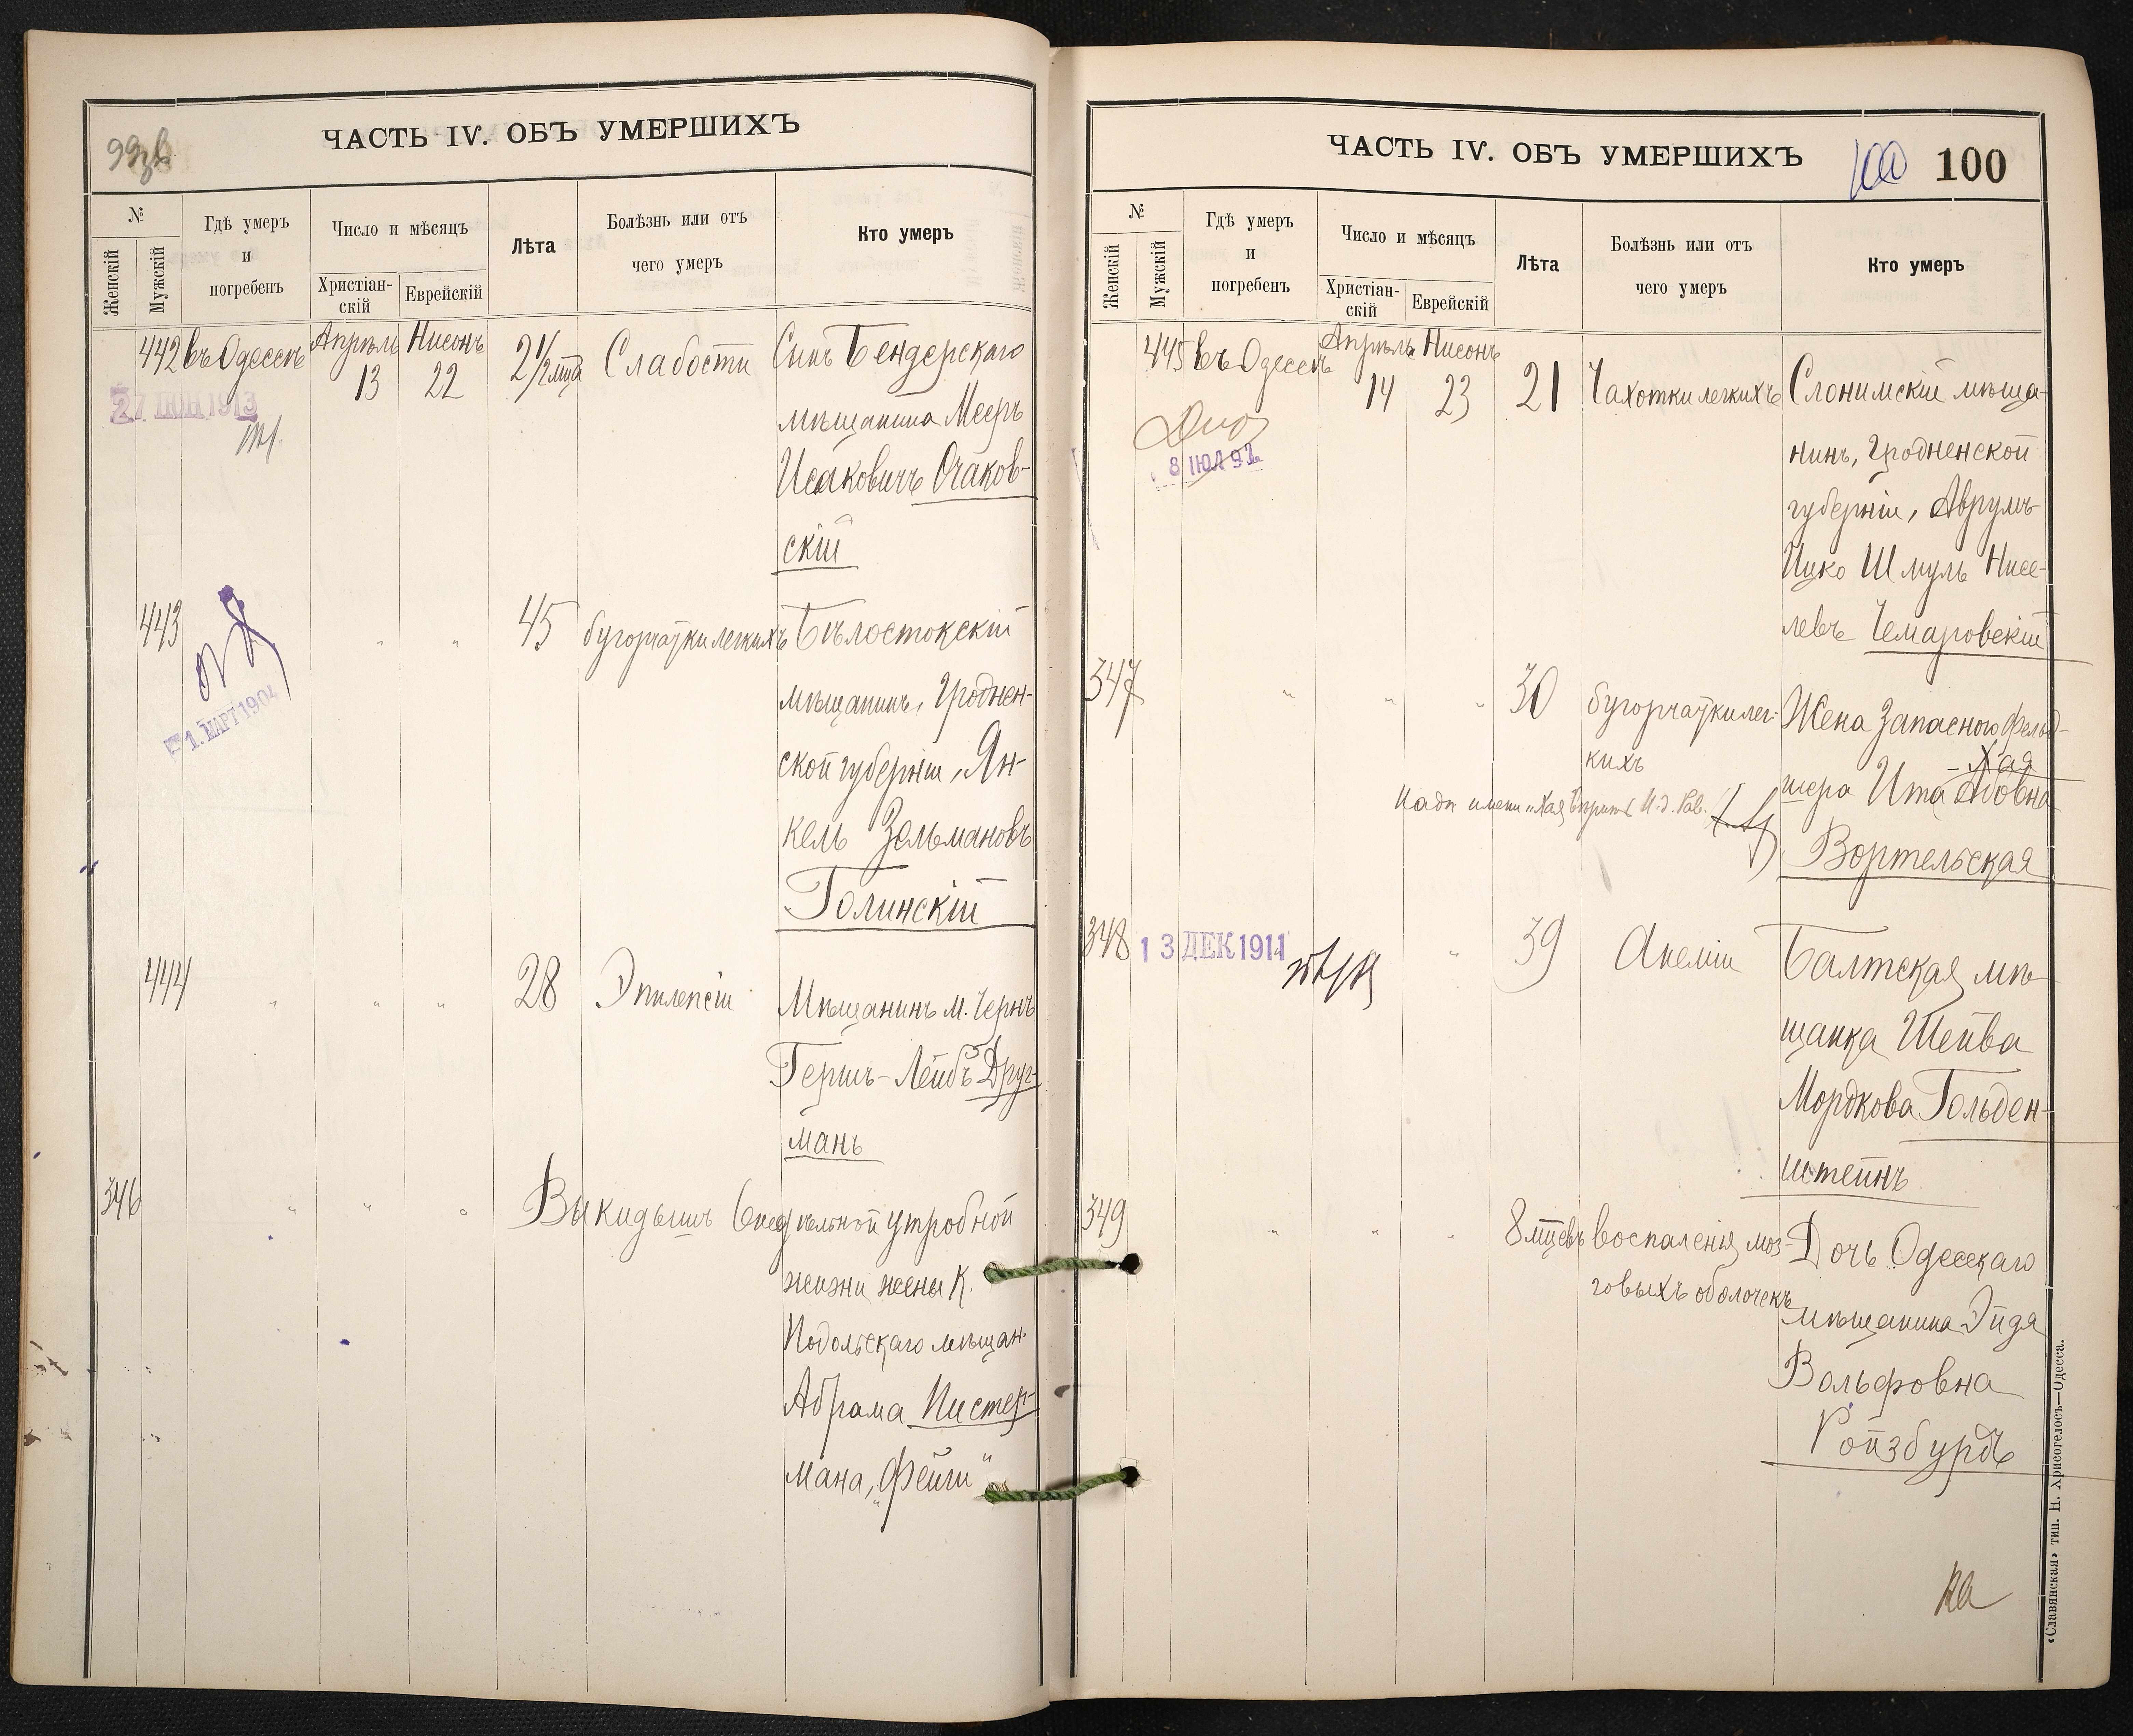 99
ЧАСТЬ IV. ОБЪ УМЕРШИХЪ
№
Женскій
Мужскій
Гдѣ умеръ
и
погребенъ
Число и мѣсяцъ
Христіан-
скій
Еврейскій
Лѣта
Болѣзнь или отъ
чего умеръ
Кто умеръ
442 въ Одессѣ Апрѣль 13 Нисонъ 22 2 1/2 мца Слабости Сынъ Бендерскаго
мѣщанина Мееръ
Исаковичъ Очаков-
скій
27 ІЮН 1913
443 " " 45 бугорчатки легкихъ Бѣлостокскій
мѣщанинъ, Гроднен-
ской губерніи, Ян-
кель Зельмановъ
Голинскій
1. МАРТ 1904
444 " " " 28 Эпилепсіи Мѣщанинъ м. Чернъ
Гершъ-Лейбъ Друг-
манъ
346 " " " Выкидышъ 6 недѣльной утробной
жизни жены К.
Подольскаго мѣщан.
Абрама Пистер-
мана, "Фейги"
ЧАСТЬ IV. ОБЪ УМЕРШИХЪ
100 100
№
Женскій
Мужскій
Гдѣ умеръ
и
погребенъ
Число и мѣсяцъ
Христіан-
скій
Еврейскій
Лѣта
Болѣзнь или отъ
чего умеръ
Кто умеръ
445 въ Одессѣ Апрѣль 14 Нисонъ 23 21 Чахотки легкихъ Слонимскій мѣща-
нинъ, Гродненской
губерніи, Аврумъ-
Ицко Шмуль Нисе-
левъ Чемаровскій
8 ІЮЛ 92
347 " " " 30 бугорчатки лег-
кихъ
Жена запаснаго фельд-
Хая
шера Ита Абовна
Вортельская
Надп имени "Хая" вѣрить И. д. Рав.
348 13 ДЕК 1911 " 39 Анеміи Балтская мѣ-
щанка Шейва
Мордкова Гольден-
штейнъ
349 " " " 8 мцевъ воспаленія моз-
говыхъ оболочекъ
Дочь Одесскаго
мѣщанина Эйдя
Вольфовна
Ройзбурдъ
на
«Славянская» тип. Н. Хрисогелосъ—Одесса.